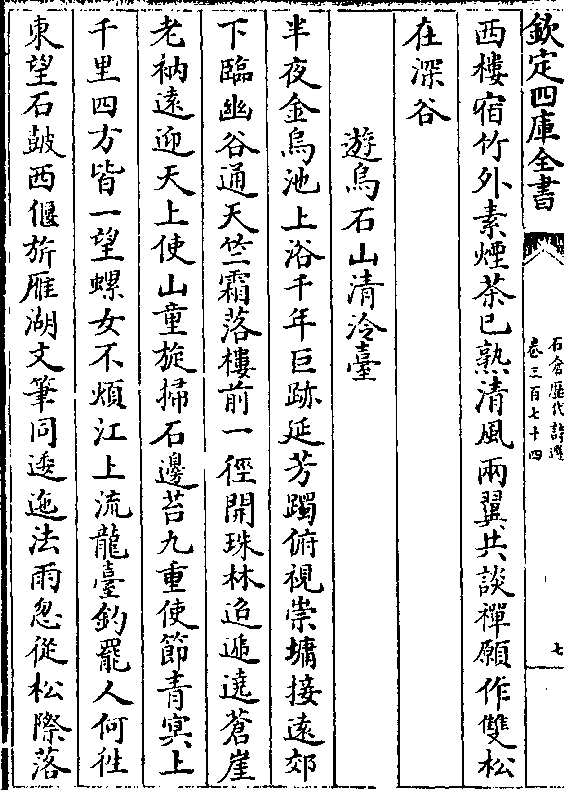 欽定四庫全書
石倉歷代詩選
卷三百七十四
七
西樓宿竹外素煙茶已熟清風兩翼共談禪願作雙松
在深谷
遊烏石山清泠臺
半夜金烏池上浴千年巨跡延芳躅俯視崇墉接遠郊
下臨幽谷通天竺霜落樓前一徑開珠林迢遞遶蒼崖
老衲遠迎天上使山童旋掃石邊苔九重使節青冥上
千里四方皆一望螺女不煩江上流龍臺釣罷人何徃
東望石皷西偃旂雁湖文筆同逶迤法雨忽從松際落